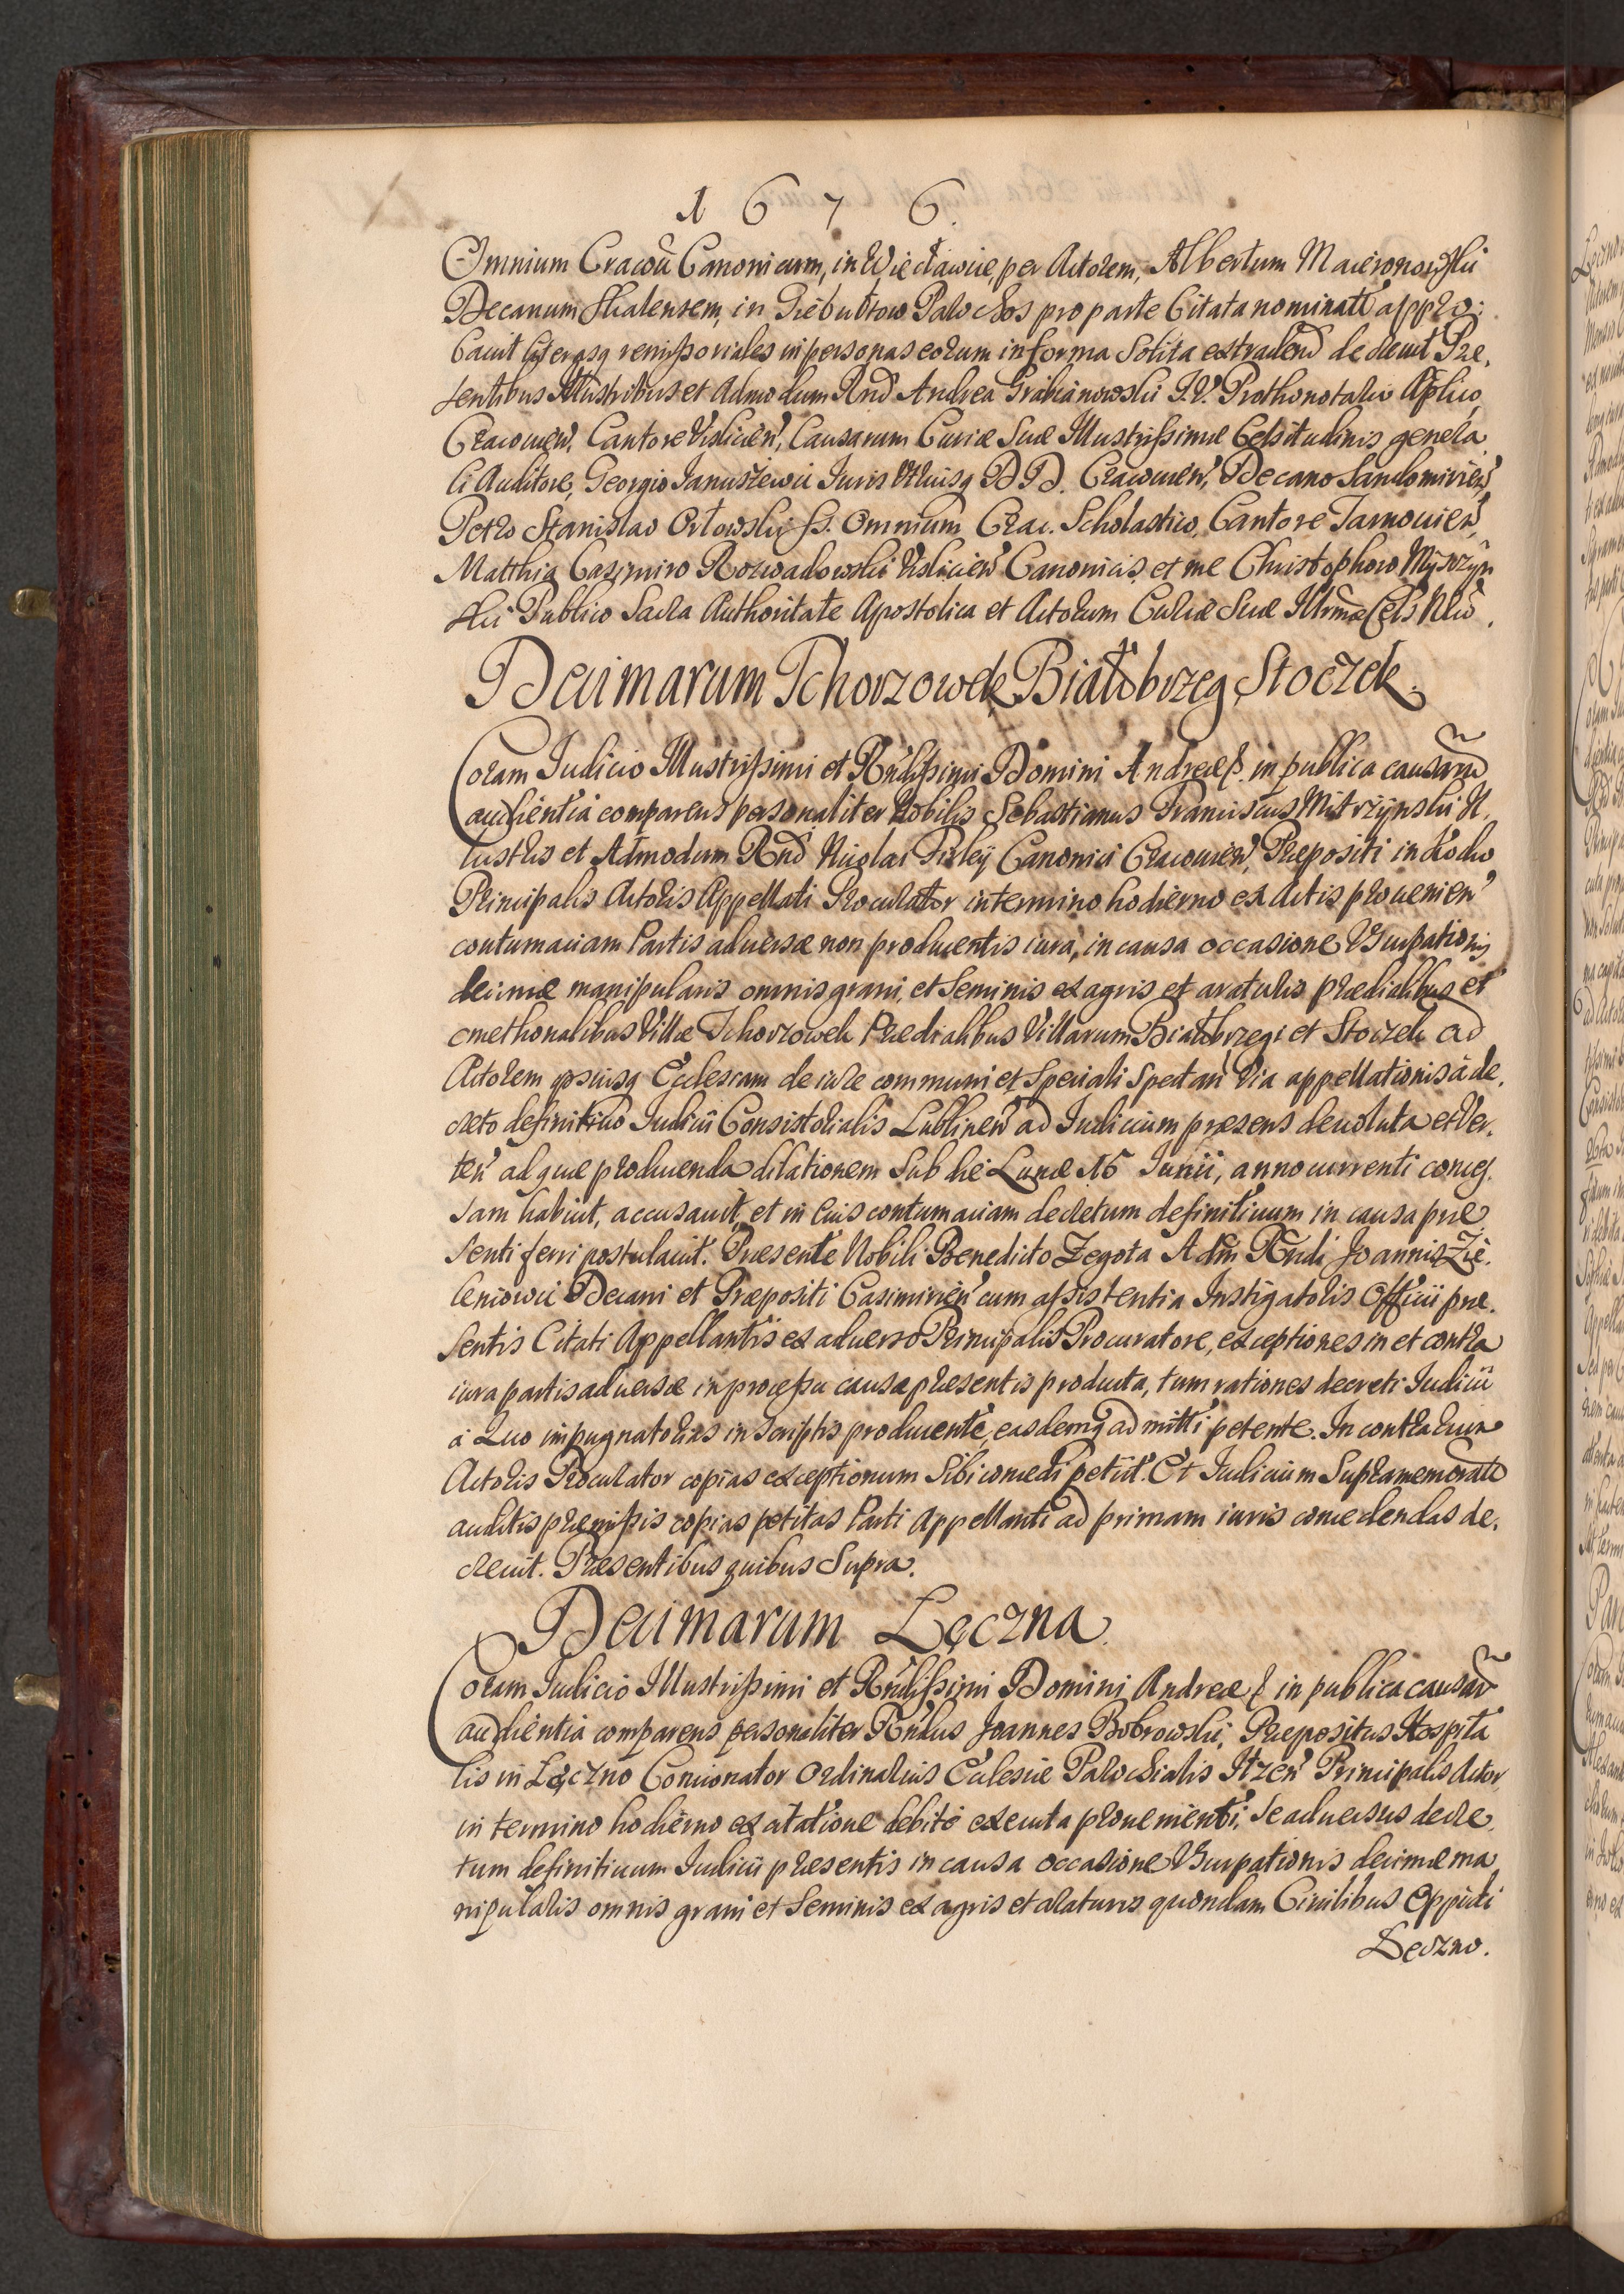 1 6 7 6.
Omnium Cracoū Canonicum, in Więcławice, per Actorem, Albertum Macieronowski
Decanum Skalensem, in Giebułtow Parochos pro parte Citata nominatē appro:
bauit literasq remissoriales in personas eorum in forma Solita extradend decreuit Præ,
sentibus Illustribus et Admodum Rnd Andrea Grabianowski I.V. Prothonotario Aplico,
Cracouien, Cantore Vislicien, Causarum Curiæ Suæ Illustrissimæ Celsitudinis genera,
li Auditore, Georgio Januszewic Iuris Vtriusq DD. Cracouien, Decano Sandomirien,
Petro Stanislao Orłowski SS. Omnium Crac. Scholastico, Cantore Tarnouien,
Matthia Casimiro Rozwadowski Vislicien Canonicis, et me Christophoro Myszyn
ski Publico Sacra Authoritate Apostolica et Actorum Curiæ Suæ Illrmæ Cels Nrio.
Decimarum Tchorzowek, Białobrzeg, Stoczek.
Coram Iudicio Illustrissimi et Rndissimi Domini Andreæ &. in publica causarū
audientia comparens personaliter Nobilis Sebastianus Franciscus Mitrzynski Il,
lustris et Admodum Rnd Nicolai Firleÿ Canonici Cracouien, Præpositi in Kocko
Principalis Actoris Appellati Procurator in termino hodierno ex Actis prouenien
contumaciam Partis aduersæ non producentis iura, in causa occasione Vsurpationis
decimæ manipularis omnis grani, et Seminis ex agris et araturis prædialibus et
cmethonalibus Villæ Tchorzowek Prædialibus Villarum Białobrzegi et Stoczek ad
Actorem ipsiusq Ecclesiam de iure communi et Speciali Spectan Via appellationis à de,
creto definitiuo Iudicii Consistorialis Lublinen ad Iudicium præsens deuoluta et Ver,
ten ad quæ producenda dilationem Sub die Lunæ 15 Iunii, anno currenti conces,
sam habuit, accusauit, et in Eius contumaciam decretum definitiuum in causa præ,
senti ferri postulauit. Præsente Nobili Benedicto Zegota Adm Rndi Joannis Zie,
leniowic Decani et Præpositi Casimirien cum assistentia Instigatoris Officii præ,
sentis Citati Appellantis ex aduerso Principalis Procuratore, exceptiones in et contra
iura partis aduersæ in processu causæ præsentis producta, tum rationes decreti Iudicii
a Quo impugnatorias in scriptis producente, easdemq admitti petente. In contrarium
Actoris Procurator copias exceptionum Sibi concedi petiit. Et Iudicium Supramemorat
auditis præmissis copias petitas Parti Appellanti ad primam iuris concedendas de,
creuit. Præsentibus quibus Supra.
Decimarum Lęczna.
Coram Iudicio Illustrissimi et Rndissimi Domini Andreæ & in publica causarū
audientia comparens personaliter Rndus Joannes Bobrowski, Præpositus Hospita
lis in Lęczno Concionator Ordinarius Ecclesiæ Parochialis Itzen Principalis Actor
in termino hodierno ex citatione debitè executa prouenienti, Se aduersus decre,
tum definitiuum Iudicii præsentis in causa occasione Vsurpationis decimæ ma,
nipularis omnis grani et Seminis ex agris et araturis quondam Ciuilibus Oppidi
Leczno.